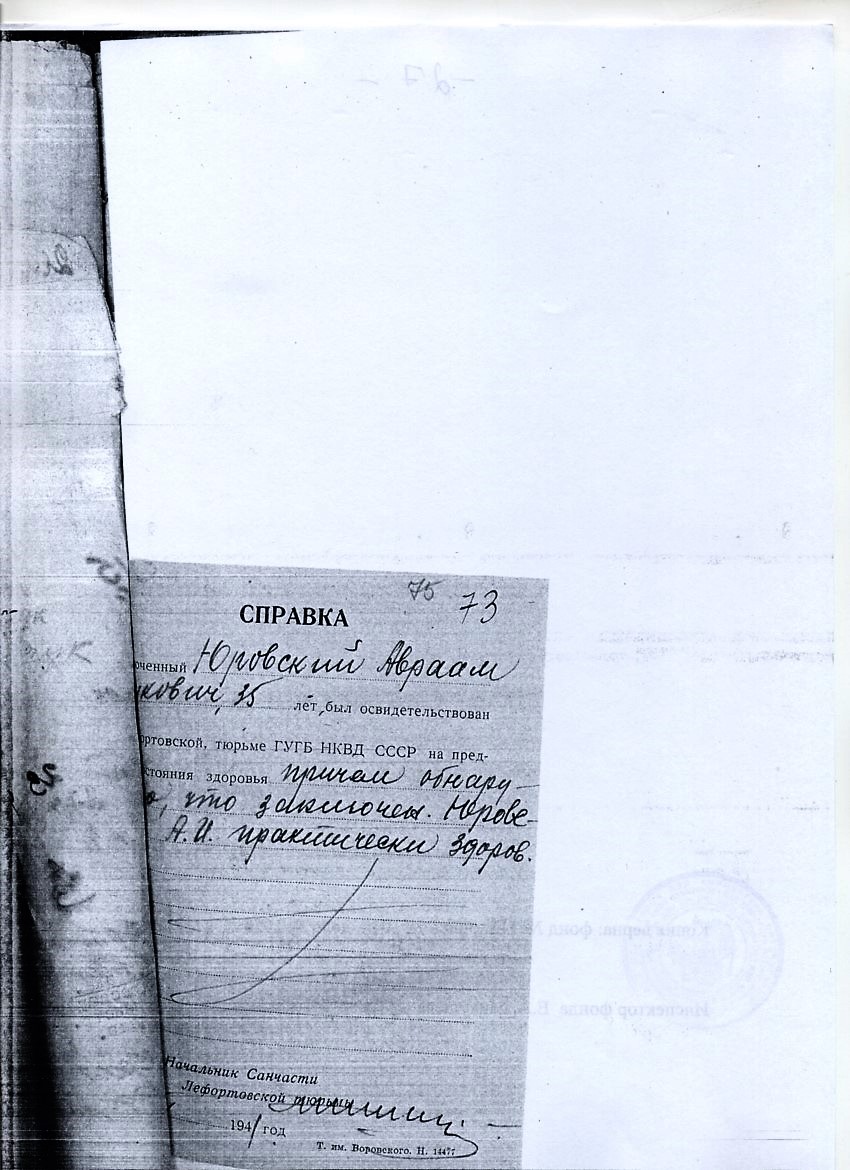 75 73
СПРАВКА
юченный Юровский Авраам
кович, 35 лет, был освидетельствован
ортовской, тюрьме ГУГБ НКВД СССР на пред-
стояния здоровья причем обнару-
о, что заключен. Юровс-
А.И. практически здоров.
Начальник Санчасти
Лефортовской тюрьмы
1941 год
Т. им. Воровского. Н. 14477